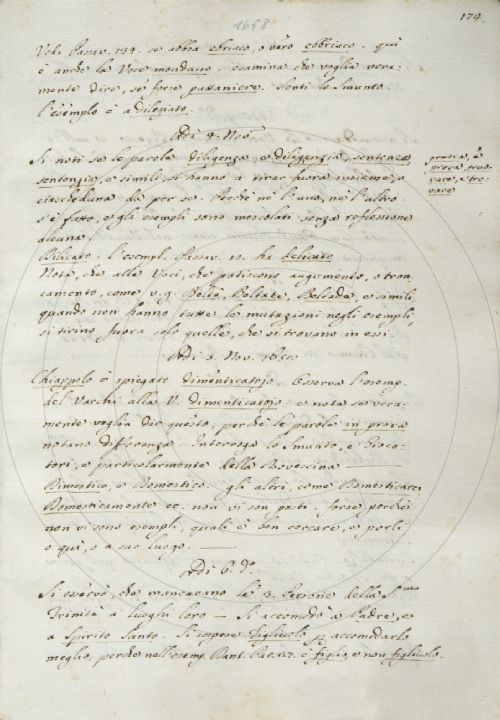 1658
174.
Vedi Passav. 134. se abbia ebrisco, o vero ebbrisco. qui
è anche la Voce mondano. esamina che voglia vera-
mente dire, se forse puttaniere. Senti lo Smunto.
l'esemplo è a dilegiato.
Adi 4. Nov.
Si noti se le parole diligenza, e diligenzia, sentenza,
sentenzia, e simili si hanno a tirar fuora insieme, o
ciascheduna da per se. Perchè nè l'uno, nè l'altro
s'è fatto, e gli esempli sono mescolati senza reflessione
alcuna
pruova, è
prova, truo
vare, e tro-
vare
l'esempl. Passav. 10. ha delicato
Nota, che alle Voci, che patiscono augumento, o tron-
camento, come v.g. Beltà, Beltate, Beltade, e simili
quando non hanno tutte le mutazioni negli esempli,
si tirino fuora solo quelle, che si trovano in essi.
Adi 5. Nov.
Chiappolo è spiegato dimenticatojo. Osserva l'esemp.
del Varchi alla V. dimenticatojo e nota se vera-
mente voglia dir questo, perchè le parole in prova
notano differenza. Interroga lo Smunto, e Gioca-
tori, e particolarmente della
Dimestico, e Domestico. gli altri, come Domesticare,
Domesticamente ec. non vi son posti, forse perchè
non vi sono esempli, quali è ben cercare, e porli
o qui, o a suo luogo.
Adi 6. do.
Si osservò, che mancavano le 3. Persone della S.ma
Trinità a' luoghi loro — Si accomodò a Padre, e
a Spirito Santo. Si impose figliuolo accomodarlo
meglio, perchè nell'esemp. Dant. Par. 27. è figlio, e non figliuolo.